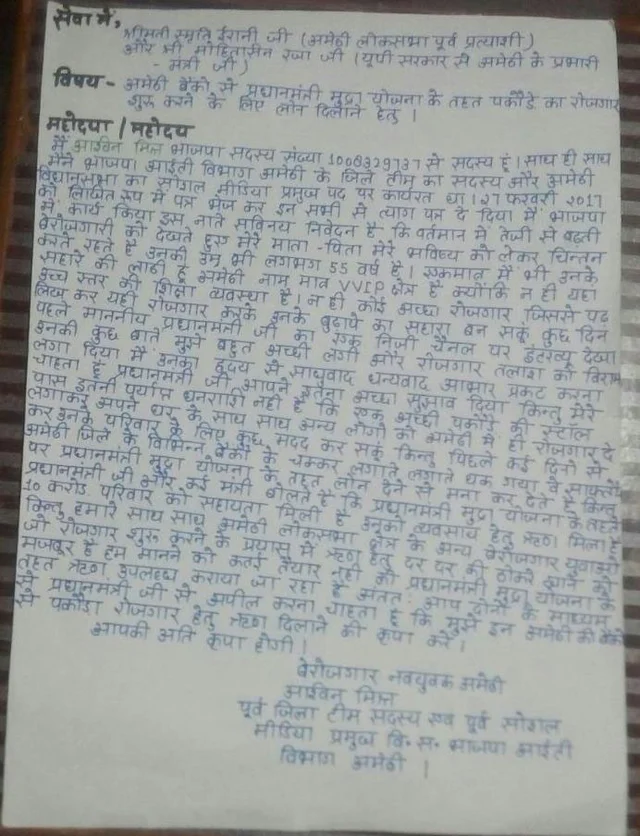 सेवा में,
श्रीमती स्मृति ईरानी जी (अमेठी लोकसभा पूर्व प्रत्याशी)
और श्री मोहसिन रजा जी (यूपी सरकार में अमेठी के प्रभारी
मंत्री जी)
विषय - अमेठी बैंको से प्रधानमंत्री मुद्रा योजना के तहत पकौड़े का रोजगार
शुरू करने के लिए लोन दिलाने हेतु ।
महोदया / महोदय
मैं अश्विन मिश्र भाजपा सदस्य संख्या 1008329737 से सदस्य हूं । साथ ही साथ
मैंने भाजपा आईटी विभाग अमेठी के जिले टीम का सदस्य और अमेठी
विधानसभा का सोशल मीडिया प्रमुख पद पर कार्यरत था । 27 फरवरी 2017
को लिखित रूप में पत्र भेज कर इन सभी से त्याग पत्र दे दिया मैं भाजपा
में कार्य किया इस नाते सविनय निवेदन है कि वर्तमान में तेजी से बढ़ती
बेरोजगारी को देखते हुए मेरे माता-पिता मेरे भविष्य को लेकर चिन्तन
करते रहते हैं उनकी उम्र भी लगभग 55 वर्ष है । एकमात्र मैं भी उनके
सहारे की लाठी हूं अमेठी नाम मात्र VVIP क्षेत्र है क्योंकि न ही यहा
उच्च स्तर की शिक्षा व्यवस्था है । न ही कोई अच्छा रोजगार जिससे पढ़
लिख कर यही रोजगार करके उनके बुढ़ापे का सहारा बन सकूं कुछ दिन
पहले माननीय प्रधानमंत्री जी का एक निजी चैनल पर इंटरव्यू देखा
उनकी कुछ बाते मुझे बहुत अच्छी लगी और रोजगार तलाश को विराम
लगा दिया मैं उनका हृदय से साधुवाद धन्यवाद आभार प्रकट करना
चाहता हूं प्रधानमंत्री जी आपने इतना अच्छा सुझाव दिया किन्तु मेरे
पास इतनी पर्याप्त धनराशी नहीं है कि एक अच्छी पकौड़े की स्टॉल
लगाकर अपने घर के साथ साथ अन्य लोगों को अमेठी में ही रोजगार दे
कर उनके परिवार के लिए कुछ मदद कर सकूं किन्तु पिछले कई दिनों से
अमेठी जिले के विभिन्न बैंकों के चक्कर लगाते लगाते थक गया वे साफतौर
पर प्रधानमंत्री मुद्रा योजना के तहत लोन देने से मना कर देते हैं किन्तु
प्रधानमंत्री जी और कई मंत्री बोलते हैं कि प्रधानमंत्री मुद्रा योजना के तहत
10 करोड़ परिवार को सहायता मिली है उनको व्यवसाय हेतु ऋण मिला है
किन्तु हमारे साथ साथ अमेठी लोकसभा क्षेत्र के अन्य बेरोजगार युवाओ
जो रोजगार शुरू करने के प्रयास में ऋण हेतु दर दर की ठोकरे खाने को
मजबूर हैं हम मानने को कतई तैयार नही की प्रधानमंत्री मुद्रा योजना के
तहत ऋण उपलब्ध कराया जा रहा है अंततः आप दोनों के माध्यम
से प्रधानमंत्री जी से अपील करना चाहता हूं कि मुझे इन अमेठी की बैंको
से पकौड़ा रोजगार हेतु ऋण दिलाने की कृपा करें ।
आपकी अति कृपा होगी ।
बेरोजगार नवयुवक अमेठी
अश्विन मिश्र
पूर्व जिला टीम सदस्य एवं पूर्व सोशल
मीडिया प्रमुख वि. स. भाजपा आईटी
विभाग अमेठी ।